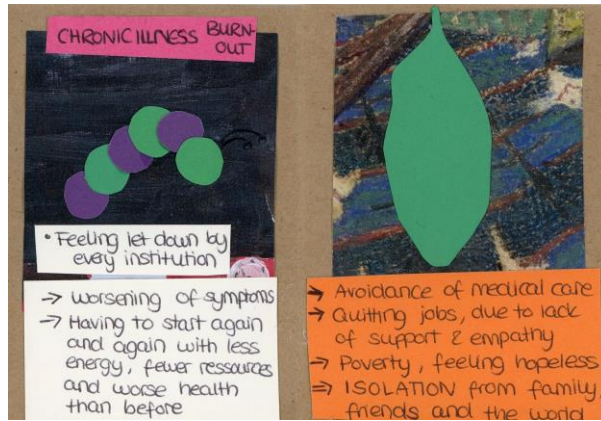 CHRONIC ILLNESS BURN-
OUT
• Feeling let down by
every institution
→ Worsening of symptoms
→ Having to start again
and again with less
energy, fewer ressources
and worse health
than before
→ Avoidance of medical care
→ Quitting jobs, due to lack
of support & empathy
→ Poverty, feeling hopeless
⇒ ISOLATION from family,
friends and the world